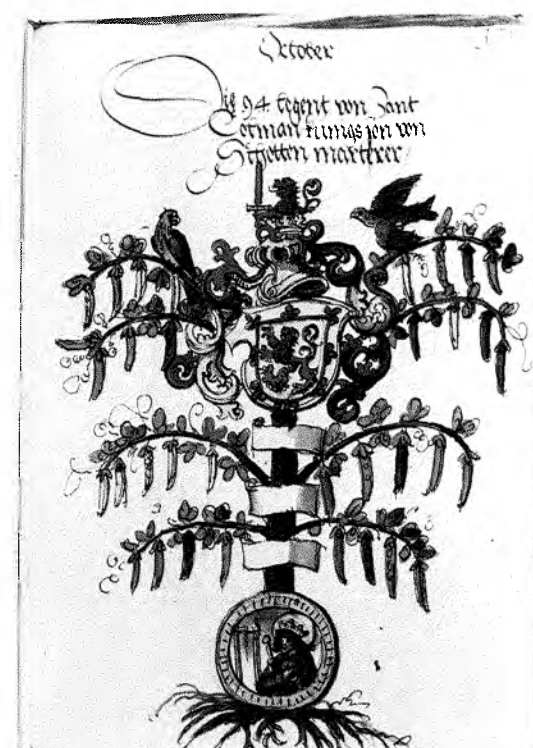 October
Die 94. legent von Sant
Colman kunigs son von
Schotten marterer